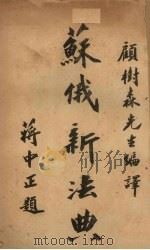 顧樹森先生編譯
蘇俄新法典
蔣中正題